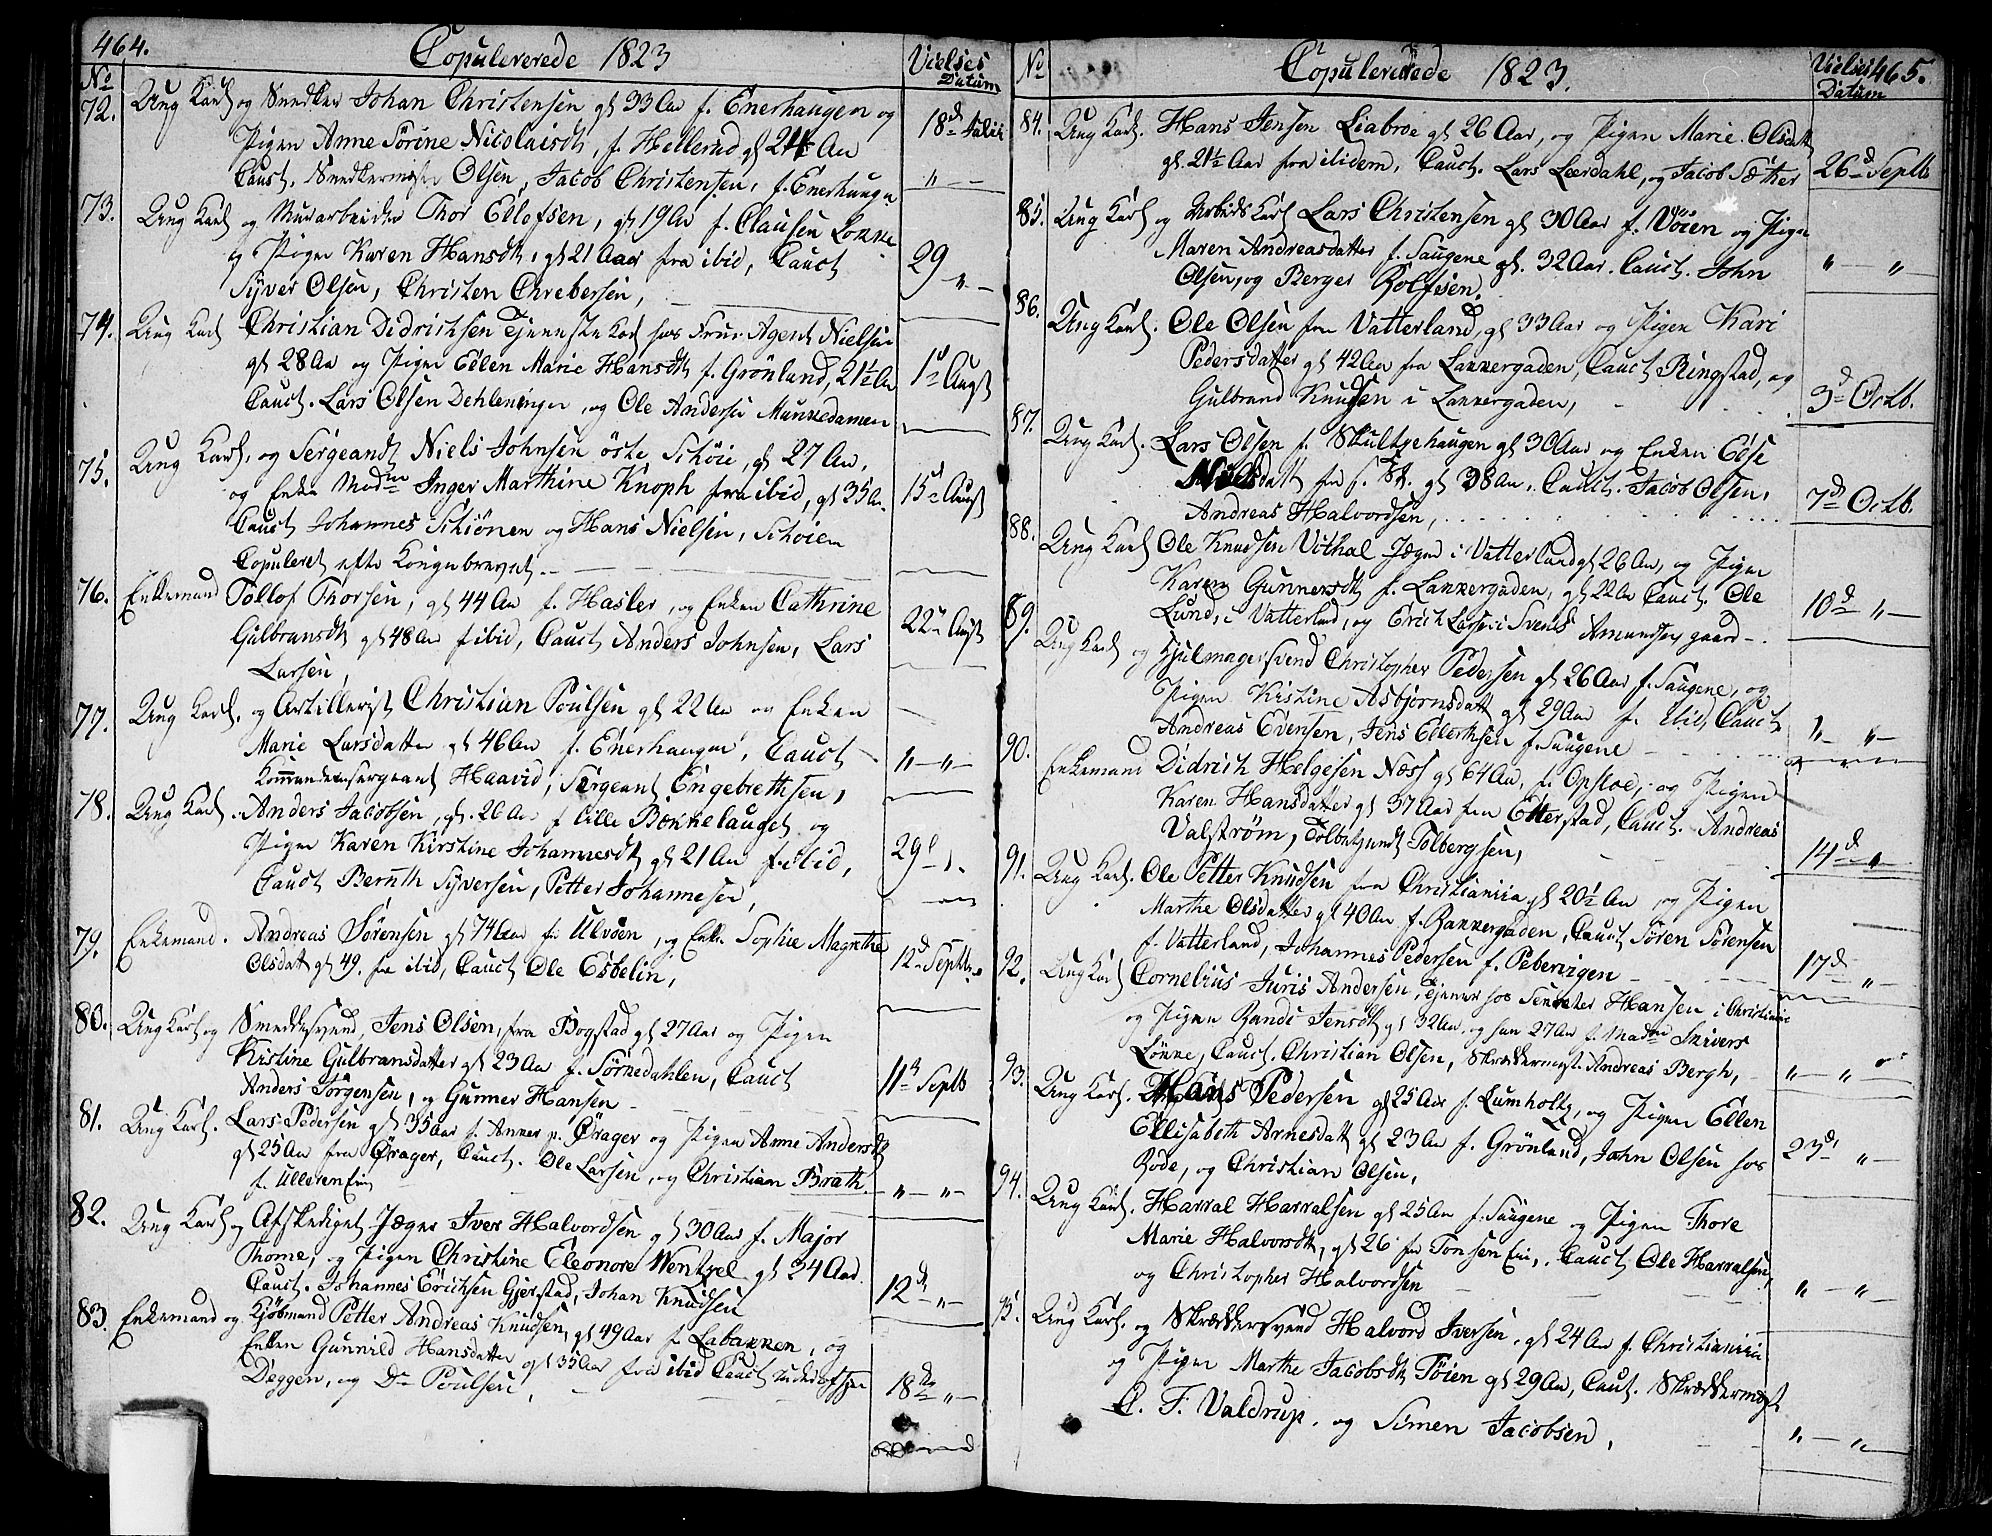 464. Copulererede 1823 Vielses Datum
No
72. Ung Karl og Snedker Johan Christensen gl 33 Aar f. Enerhaugen og 18d Julii
Pigen Anne Sörine Nicolaisdt, f. Hellerud gl 21½ Aar
Cauct. Snedkermester Olsen, Jacob Christensen, f. Enerhaugn " —
73. Ung Karl og Murarbeider Thor Ellofsen, gl 19 Aar f. Clausen Lökke
og Pigen Karen Hansdt, gl 21 Aar fra ibid, Cauct 29 — " —
Syver Olsen, Christen Chrebersen,
74. Ung Karl Christian Didrichsen Tjeneste Karl hos Frue Agent Nielsen
gl 28 Aar og Pigen Ellen Marie Hansdt f. Grönland, 21½ Aar 1d Augst
Cauct. Lars Olsen Dehleninger, og Ole Andersen Munkedamen
75. Ung Karl, og Sergeandt Niels Johnsen öste Schöie, gl 27 Aar,
og Enke Madme Inger Marthine Knoph fra ibid, gl 35 Aar 15d Augst
Cauct Johannes Schiönen og Hans Nielsen, Schöien
Copuleret efter Kongebrevet —
76. Enkemand Tollof Thorsen, gl 44 Aar f. Hasler, og Enken Cathrine
Gulbransdt gl 48 Aar f ibid, Cauct Anders Johnsen, Lars 22de Augst
Larsen,
77. Ung Karl, og Artillerist Christian Poulsen gl 22 Aar og Enken
Marie Larsdatter gl 46 Aar f. Enerhaugen, Cauct
Kommandeersergeant Haavid, Sergeant Engebrethsen, " — " —
78. Ung Karl. Anders Jacobsen, gl. 26 Aar f lille Bekkelauget og
Pigen Karen Kirstine Johannesdt gl 21 Aar f. ibid, 29d " .
Cauct Bernth Syversen, Petter Johannesen,
79. Enkemand. Andreas Sörensen gl 74 Aar fra Ulvöen, og Enke Sophie Magrethe
Olsdatt gl 49. fra ibid, Cauct Ole Esbelin, 12d Septbr
80. Ung Karl og Smeddesvend, Jens Olsen, fra Bogstad gl 27 Aar og Pigen
Kistine Gulbransdatter gl 23 Aar f. Sörkedahlen, Cauct 11te Septb
Anders Jörgensen, og Gunner Hansen
81. Ung Karl. Lars Pedersen gl 35 Aar f. Anner p. Örager og Pigen Anne Andersdt
gl 25 Aar fra Örager, Cauct. Ole Larsen, og Christian Brath.
f. Ulleren Eie " — " —
82. Ung Karl og Afskediget Jæger Iver Halvordsen gl 30 Aar f. Major
Thome, og Pigen Christine Eleonore Wentzel gl 24 Aar.
Cauct. Johannes Erichsen Gjerstad, Johan Knudsen 12d " —
83. Enkemand og Kjöbmand Petter Andreas Knudsen, gl 49 Aar f. Labakken, og
Enken Gunnild Hansdatter gl 35 Aar fra ibid Cauct
Deggen, og Dr Poulsen, 18de " —
No Copulererede 1823. Vielses Datum 465.
84. Ung Karl. Hans Jensen Liabroe gl 26 Aar, og Pigen Marie Olsdatt
gl. 21½ Aar fra ibidem, Cauct. Lars Leerdahl, og Jacob Sæther 26d Septb
85. Ung Karl og Arbeids Karl Lars Christensen gl 30 Aar f. Vöien og Pigen
Maren Andreasdatter f. Saugene gl. 32 Aar. Cauct. John " — "
Olsen, og Berger Rolfsen.
86. Ung Karl. Ole Olsen fra Vatterland, gl 33 Aar og Pigen Kari
Pedersdatter gl 42 Aar fra Lakkergaden, Cauct Ringstad, og
Gulbrand Knudsen i Lakkergaden, 3d Octb.
87. Ung Karl. Lars Olsen f. Skultzehaugen gl 30 Aar og Enken Else
Nilsdatt fra f. St. gl 38 Aar. Cauct. Jacob Olsen,
Andreas Halvordsen, 7de Octb.
88. Ung Karl Ole Knudsen Vithal Jæger i Vatterland gl 26 Aar, og Pigen
Karen Gunnersdt f. Lakkergaden, gl 22 Aar Cauct. Ole
Lund, i Vatterland, og Erich Larsen i Svends Amundsen gaard —. 10d " —
89. Ung Karl og Hjulmagersvend Christopher Pedersen gl 26 Aar f. Saugene, og
Pigen Kistine Asbjörnsdatt gl 29 Aar f. ibid, Cauct
Andreas Evensen, Jens Ellerthsen f. Saugene " — " —
90. Enkemand Didrich Helgesen Næss gl 64 Aar, f. Opsloe, og Pigen
Karen Hansdatter gl 37 Aar fra Etterstad, Cauct. Andreas
Valström, Tolbetjendt Tolbergsen, 14d " —
91. Ung Karl. Ole Petter Knudsen fra Christiania gl 20½ Aar og Pigen
Marthe Olsdatter gl 40 Aar f. Bakkergaden, Cauct Sören Sörensen
f. Vatterland, Johannes Pedersen f. Pebervigen 17d " —
92. Ung Karl Cornelius Juris Andersen, Tjener hos Senater Hansen i Christiania
og Pigen Randi Jensdt gl 32 Aar, og han 27 Aar f. Madm Skivers
Lökke, Cauct. Christian Olsen, Skreddermest. Andreas Bergh, " — "
93. Ung Karl. Hans Pedersen gl 25 Aar f. Lumholtz, og Pigen Ellen
Ellisabeth Arnesdatt gl 23 Aar f. Grönland, John Olsen hos 23d " —
Rode, og Christian Olsen,
94. Ung Karl. Harral Harralsen gl 25 Aar f. Saugene og Pigen Thore
Marie Halvorsdt, gl 26 fra Tonsen Eie, Cauct Ole Harralsen,
og Christopher Halvordsen " — " —
95. Ung Karl. og Skreddersvend Halvord Iversen, gl 24 Aar f. Christiania
og Pigen Marthe Jacobsdt Töien gl 29 Aar, Caut. Skreddermest
C. F. Valdrup. og Simen Jacobsen, " — " —